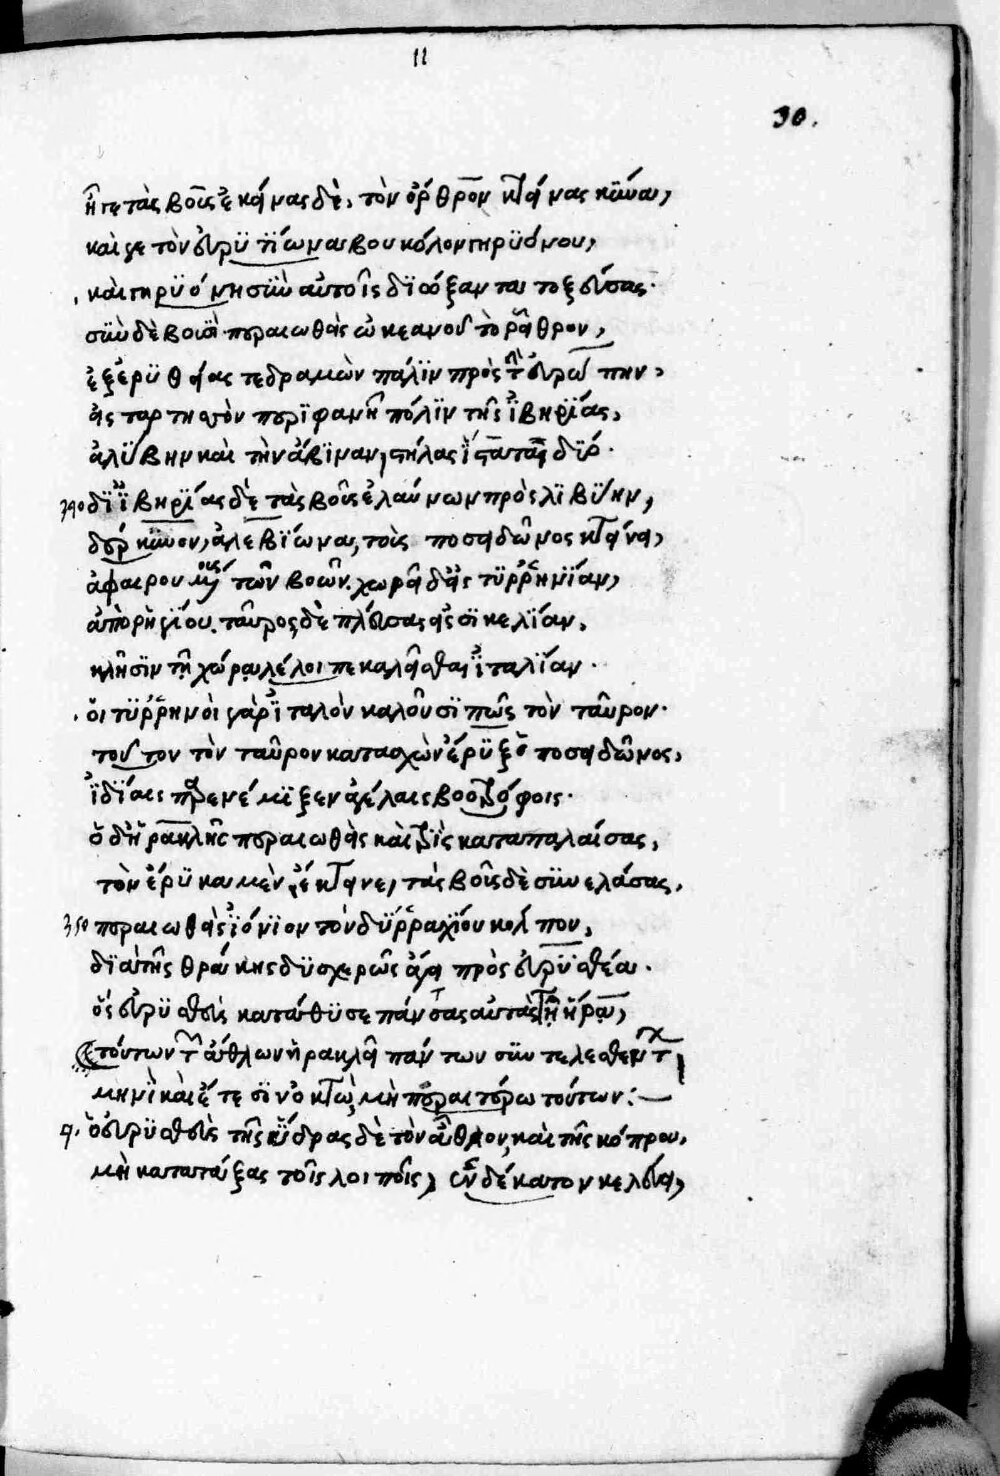 11
30.
ἦγε τὰς βοῦς ἐκεῖνας δὲ, τὸν ὄρθρον κτείνας κύνα,
καὶ γε τὸν εὐρυτίωνα βουκόλον γηρυόνου,
καὶ γηρυόνη σὺν αὐτοῖς διόξαντα τοξεύσας.
σὺν δὲ βουσὶ περαιωθεὶς ὠκεανοῦ τὸ ῥεῖθρον,
ἐξ ἐρυθείας τε δραμὼν πάλιν πρὸς τὴν εὐρώπην,
εἰς ταρτησὸν περιφανῆ πόλιν τῆς ἰβηρίας,
ἀλύβην καὶ τὴν ἀβίναν, στήλας ἱστᾷ ταῖς δύο.
340 δι ἰβηρίας δὲ τὰς βοῦς ἐλαύνων πρὸς λιβύην,
δέρκυνον, ἀλεβίωνα, τοὺς ποσειδῶνος κτείνει,
ἀφαιρουμένους τῶν βοῶν. χωρεῖ δ' εἰς τυῤῥηνίαν,
ἀπὸ ῥηγίου. ταῦρος δὲ πλεύσας εἰς σικελίαν,
κλῆσιν τῇ χώρᾳ λέλοιπε καλεῖσθαι ἰταλίαν.
οἱ τυῤῥηνοὶ γὰρ ἰταλὸν καλοῦσί πως τὸν ταῦρον.
τοῦτον τὸν ταῦρον κατασχὼν ἔρυξ ὁ ποσειδῶνος,
ἰδίαις παρενέμιξεν ἀγέλαις βοοτρόφοις.
ὁ δ' ἡρακλῆς περαιωθεὶς καὶ τρὶς καταπαλαίσας,
τὸν ἔρυκα μὲν ἔκτανε, τὰς βοῦς δὲ συνελάσας,
350 περαιωθεὶς ἰόνιον τὸν δυῤῥαχίου κόλπον,
διὰ τῆς θράκης δυσχερῶς ἄγει πρὸς εὐρυσθέα.
ὃς εὐρυσθεὺς κατάθυσε πάντας αὐτὰς τῇ ἥρᾳ,
τούτων τῶν ἄθλων ἡρακλεῖ πάντων συντελεσθέντων
μηνὶ καὶ ἔτεσιν ὀκτὼ, μὴ περαιτέρω τούτων:—
ὁ εὐρυσθεὺς τῆς ὕδρας δὲ τὸν ἆθλον, καὶ τῆς κόπρου,
μὴ κατατάξας τοῖς λοιποῖς, ἑνδέκατον κελεύει,